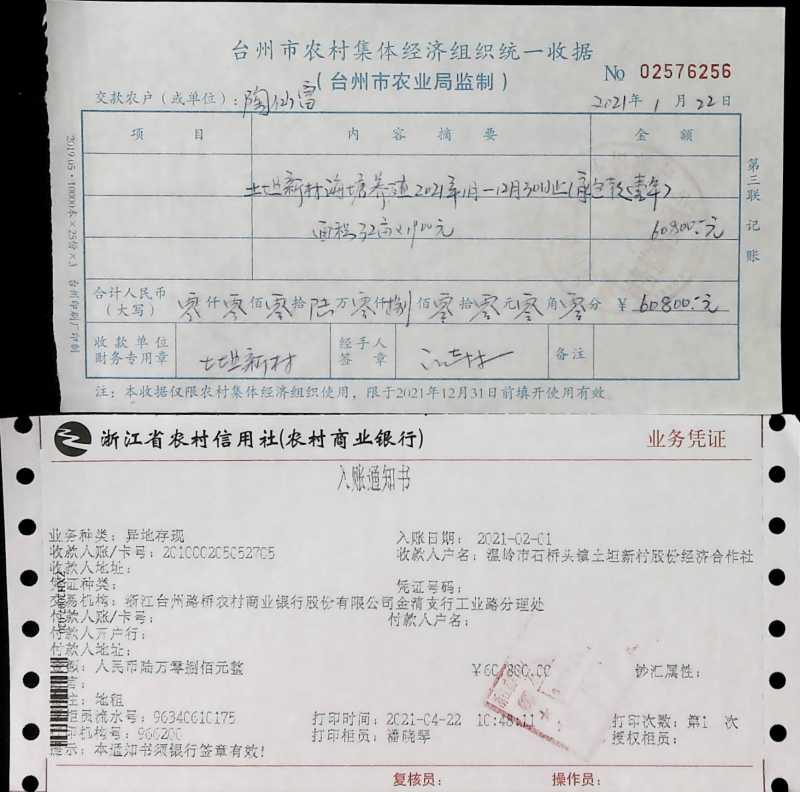 台州市农村集体经济组织统一收据
(台州市农业局监制)
No 02576256
交款农户(或单位):陶仙富
2021年1月22日
项目 内容摘要 金额
土坦新村海塘养殖2021年1月-12月30日止(承包款壹年)
面积32亩×1900元 60800.00元
合计人民币(大写) 零仟零佰零拾陆万零仟捌佰零拾零元零角零分 ¥60800.00元
收款单位财务专用章 土坦新村 经手人签章 备注
注:本收据仅限农村集体经济组织使用,限于2021年12月31日前填开使用有效
第三联 记账
2019.05·10000本×25份×3 台州印刷厂印制
浙江省农村信用社(农村商业银行) 业务凭证
入账通知书
业务种类:异地存现 入账日期: 2021-02-01
收款人账/卡号:201000205052705 收款人户名:温岭市石桥头镇土坦新村股份经济合作社
收款人地址:
凭证种类: 凭证号码:
交易机构:浙江台州路桥农村商业银行股份有限公司金清支行工业路分理处
付款人账/卡号: 付款人户名:
付款人开户行:
付款人地址:
金额:人民币陆万零捌佰元整 ¥60,800.00 钞汇属性:
言:
注:地租
柜员流水号:96340610175 打印时间:2021-04-22 10:48:11 打印次数:第1 次
印机构号:966200 打印柜员:潘晓琴 授权柜员:
提示:本通知书须银行签章有效!
复核员: 操作员: